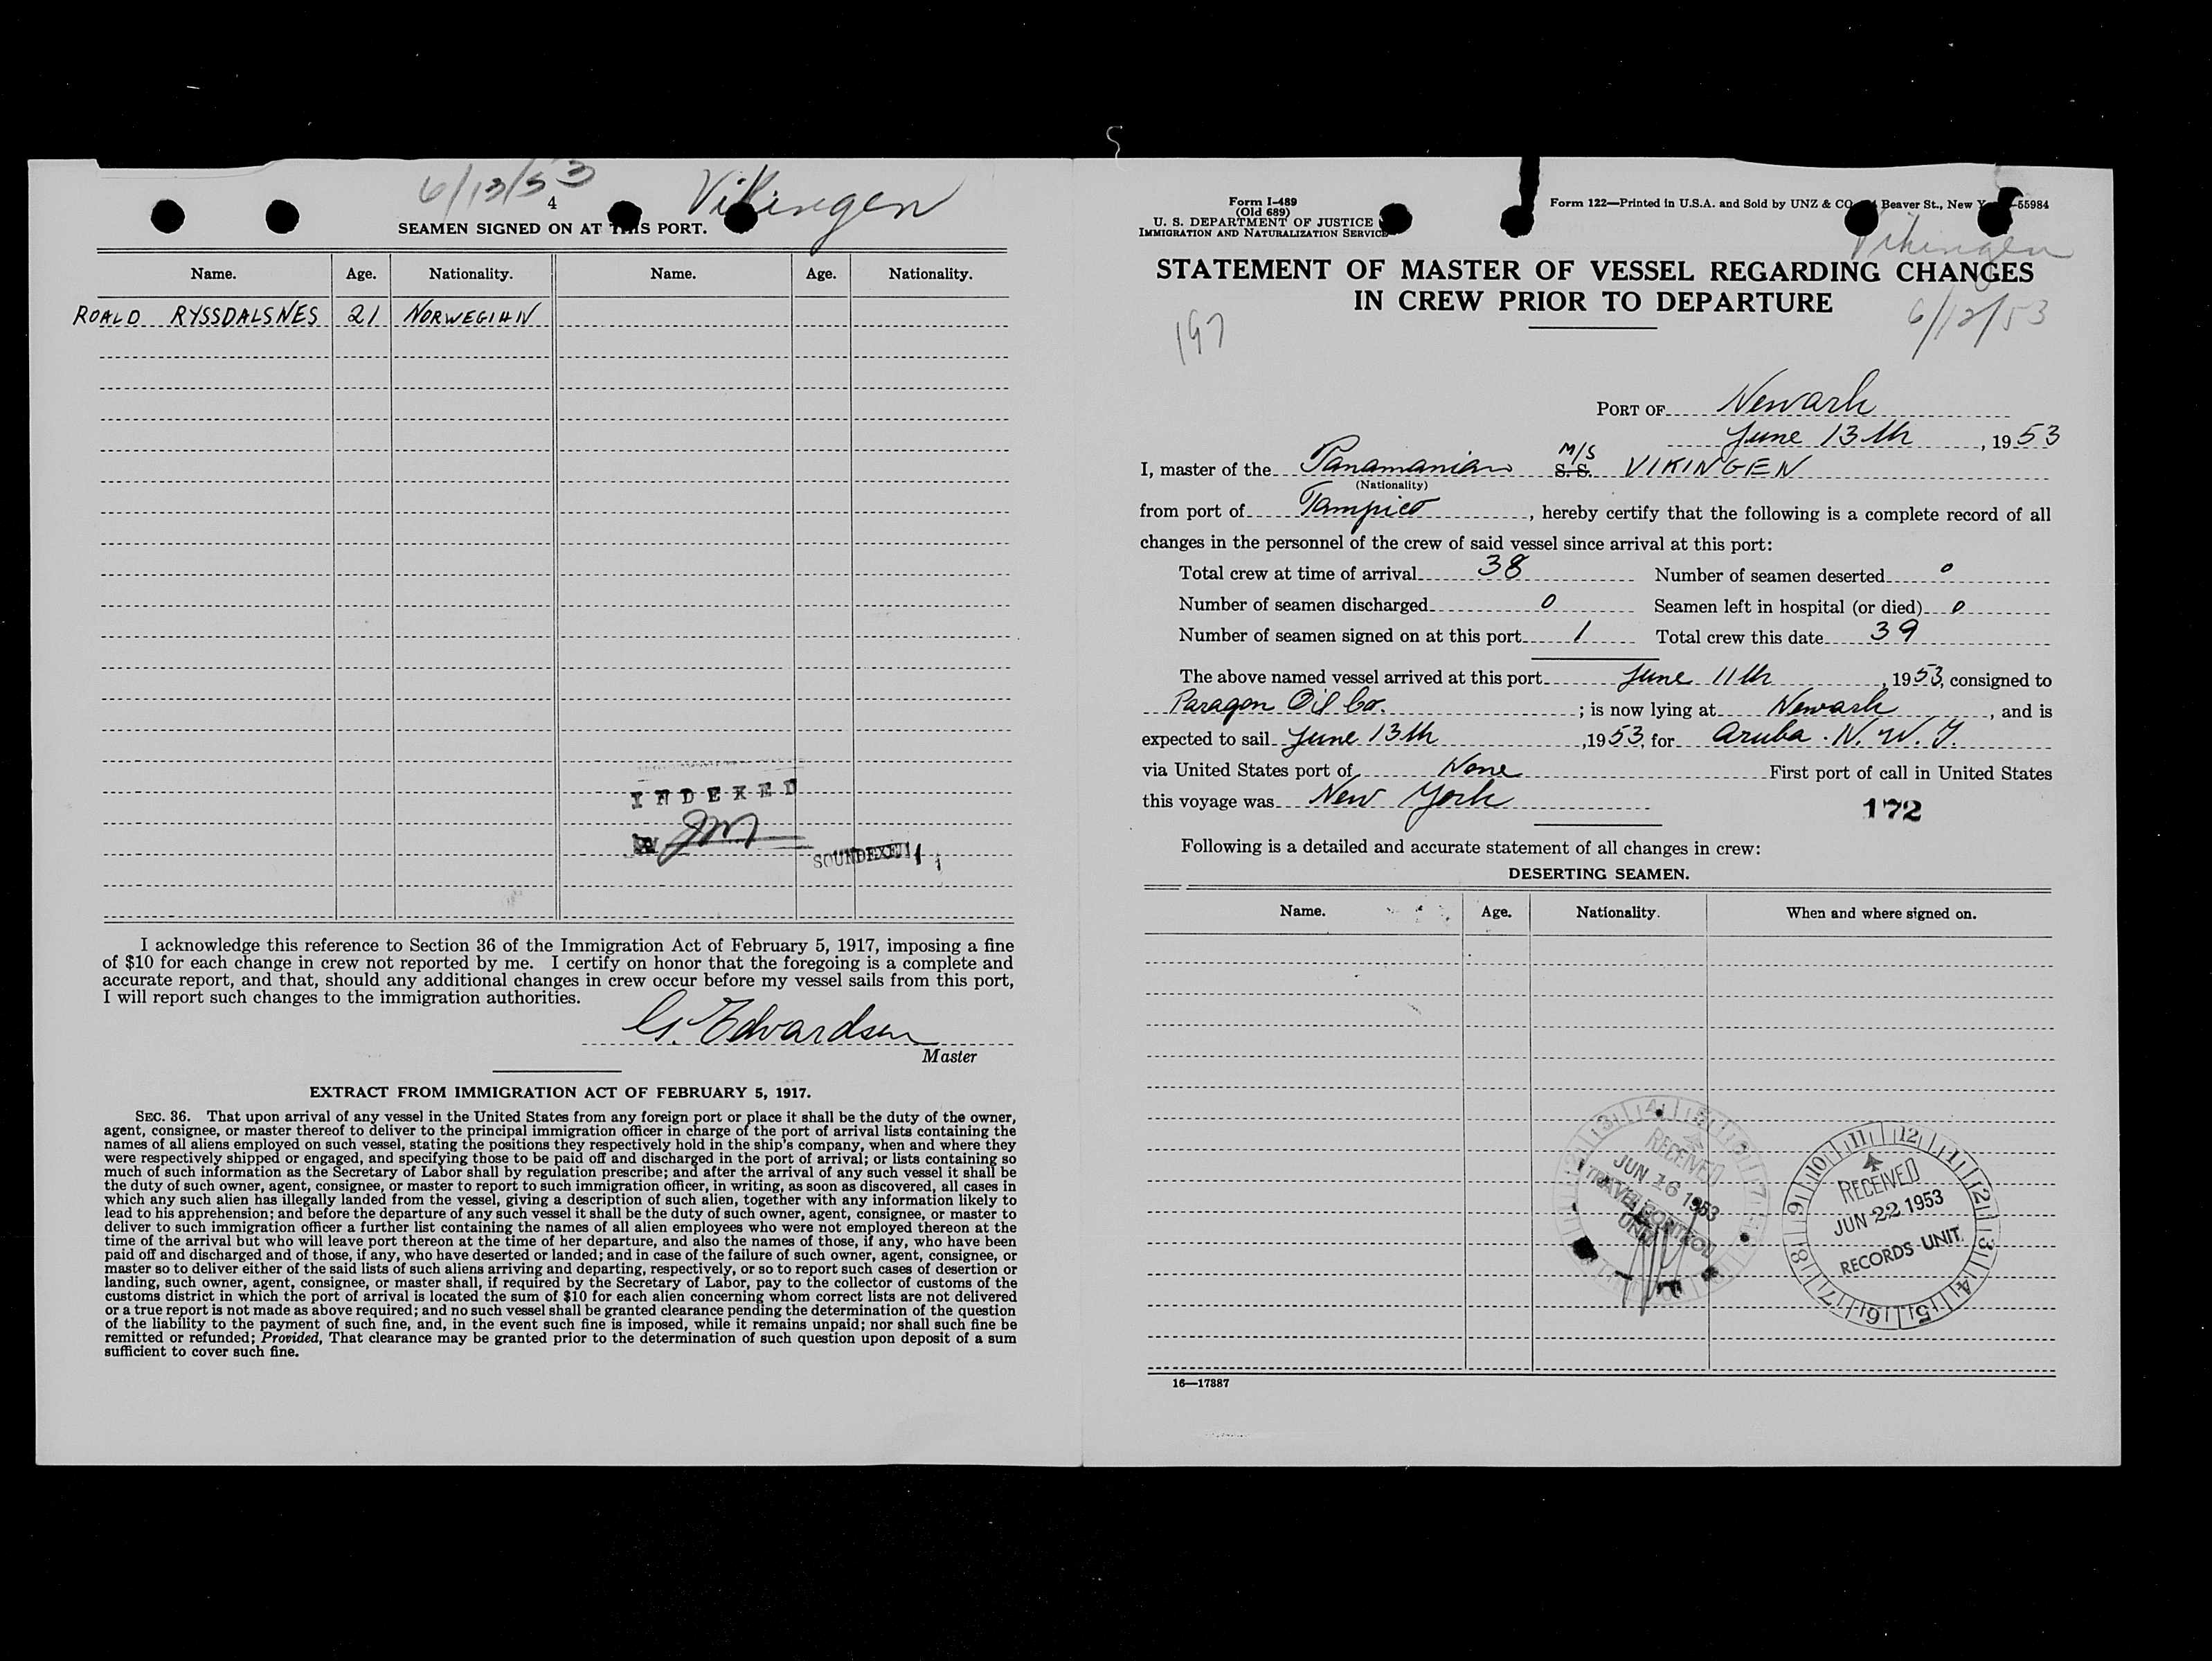 6/13/53
Vikingen
4
SEAMEN SIGNED ON AT THIS PORT.
Name. Age. Nationality. Name. Age. Nationality.
ROALD RYSSDALSNES 21 NORWEGIAN
INDEXED
JM
SOUNDEXED
I acknowledge this reference to Section 36 of the Immigration Act of February 5, 1917, imposing a fine
of $10 for each change in crew not reported by me. I certify on honor that the foregoing is a complete and
accurate report, and that, should any additional changes in crew occur before my vessel sails from this port,
I will report such changes to the immigration authorities.
G. Edvardsen
Master
EXTRACT FROM IMMIGRATION ACT OF FEBRUARY 5, 1917.
SEC. 36. That upon arrival of any vessel in the United States from any foreign port or place it shall be the duty of the owner,
agent, consignee, or master thereof to deliver to the principal immigration officer in charge of the port of arrival lists containing the
names of all aliens employed on such vessel, stating the positions they respectively hold in the ship's company, when and where they
were respectively shipped or engaged, and specifying those to be paid off and discharged in the port of arrival; or lists containing so
much of such information as the Secretary of Labor shall by regulation prescribe; and after the arrival of any such vessel it shall be
the duty of such owner, agent, consignee, or master to report to such immigration officer, in writing, as soon as discovered, all cases in
which any such alien has illegally landed from the vessel, giving a description of such alien, together with any information likely to
lead to his apprehension; and before the departure of any such vessel it shall be the duty of such owner, agent, consignee, or master to
deliver to such immigration officer a further list containing the names of all alien employees who were not employed thereon at the
time of the arrival but who will leave port thereon at the time of her departure, and also the names of those, if any, who have been
paid off and discharged and of those, if any, who have deserted or landed; and in case of the failure of such owner, agent, consignee, or
master so to deliver either of the said lists of such aliens arriving and departing, respectively, or so to report such cases of desertion or
landing, such owner, agent, consignee, or master shall, if required by the Secretary of Labor, pay to the collector of customs of the
customs district in which the port of arrival is located the sum of $10 for each alien concerning whom correct lists are not delivered
or a true report is not made as above required; and no such vessel shall be granted clearance pending the determination of the question
of the liability to the payment of such fine, and, in the event such fine is imposed, while it remains unpaid; nor shall such fine be
remitted or refunded; Provided, That clearance may be granted prior to the determination of such question upon deposit of a sum
sufficient to cover such fine.
Form I-489
(Old 689)
U. S. DEPARTMENT OF JUSTICE
IMMIGRATION AND NATURALIZATION SERVICE
Form 122—Printed in U.S.A. and Sold by UNZ & CO Beaver St., New Y 55984
Vikingen
STATEMENT OF MASTER OF VESSEL REGARDING CHANGES
IN CREW PRIOR TO DEPARTURE
6/12/53
197
PORT OF Newark
June 13th, 1953
I, master of the Panamanian M/S S.S. VIKINGEN
(Nationality)
from port of Tampico, hereby certify that the following is a complete record of all
changes in the personnel of the crew of said vessel since arrival at this port:
Total crew at time of arrival 38 Number of seamen deserted 0
Number of seamen discharged 0 Seamen left in hospital (or died) 0
Number of seamen signed on at this port 1 Total crew this date 39
The above named vessel arrived at this port June 11th, 1953, consigned to
Paragon Oil Co.; is now lying at Newark, and is
expected to sail June 13th, 1953, for Aruba. N. W. J.
via United States port of None First port of call in United States
this voyage was New York
172
Following is a detailed and accurate statement of all changes in crew:
DESERTING SEAMEN.
Name. Age. Nationality. When and where signed on.
RECEIVED
JUN 16 1953
TRAVEL CONTROL
UNIT
RECEIVED
JUN 22 1953
RECORDS UNIT
16—17387